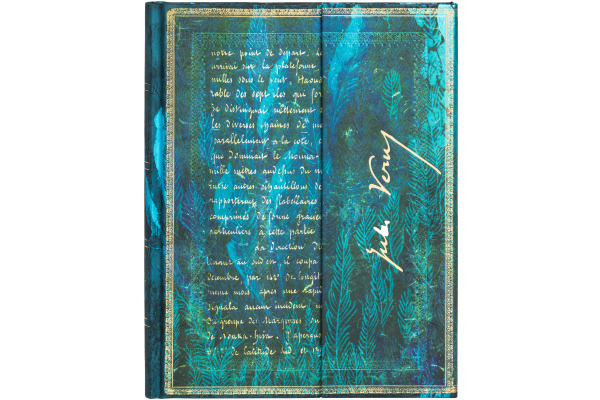 notre point de départ. Je
arrivai sur la plateforme
milles sous le vent, Haoua
rable des sept iles qui for
Je distinguai nettement
les diverses chaines de mo
parallèlement à la côte, e
que dominait le Mouna-
mille mètres audessus du n
entre autres échantillons de
rapportèrent des flabellaires
comprimés de forme gracieu
particuliers à cette partie
La direction du
au sud-est, il coupa
décembre, par 142° de longit
même mois après une rapi
signala aucun incident, no
Du groupe des Marquises
de Nouka-hiva. J'aperçus
de latitude Sud. et 139
Jules Verne